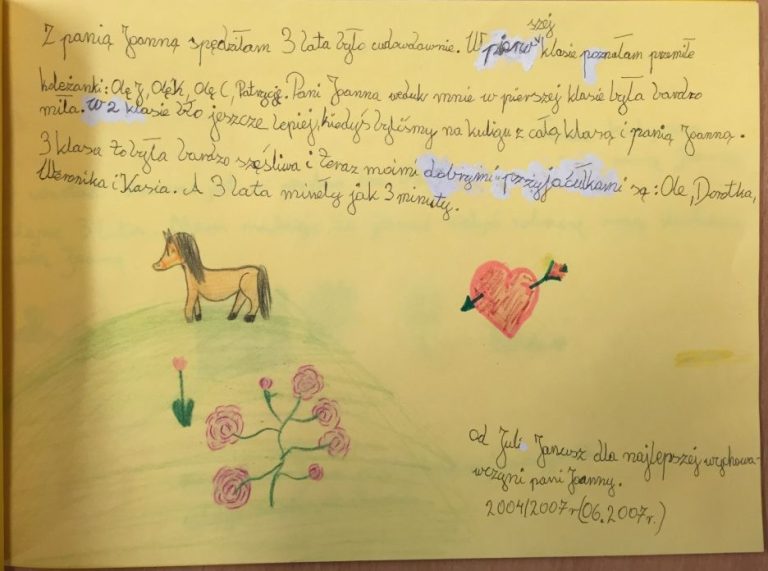 Z panią Joanną spędziłam 3 lata było cudowdownie. W pierwszej klasie poznałam przemiłe
koleżanki: Olę J, Olę K, Olę C, Patrycję. Pani Joanna według mnie w pierszej klasie była bardzo
miła. W 2 klasie bło jeszcze lepiej, kiedyś byliśmy na kuligu z całą klasą i panią Joanną.
3 klasa to była bardzo szęśliwa i teraz moimi dobrymi przyjaciułkami są: Ole, Dorotka,
Weronika i Kasia. A 3 lata minęły jak 3 minuty.
od Juli Janusz dla najlepszej wychowa-
wczyni pani Joanny.
2004/2007r (06.2007r.)